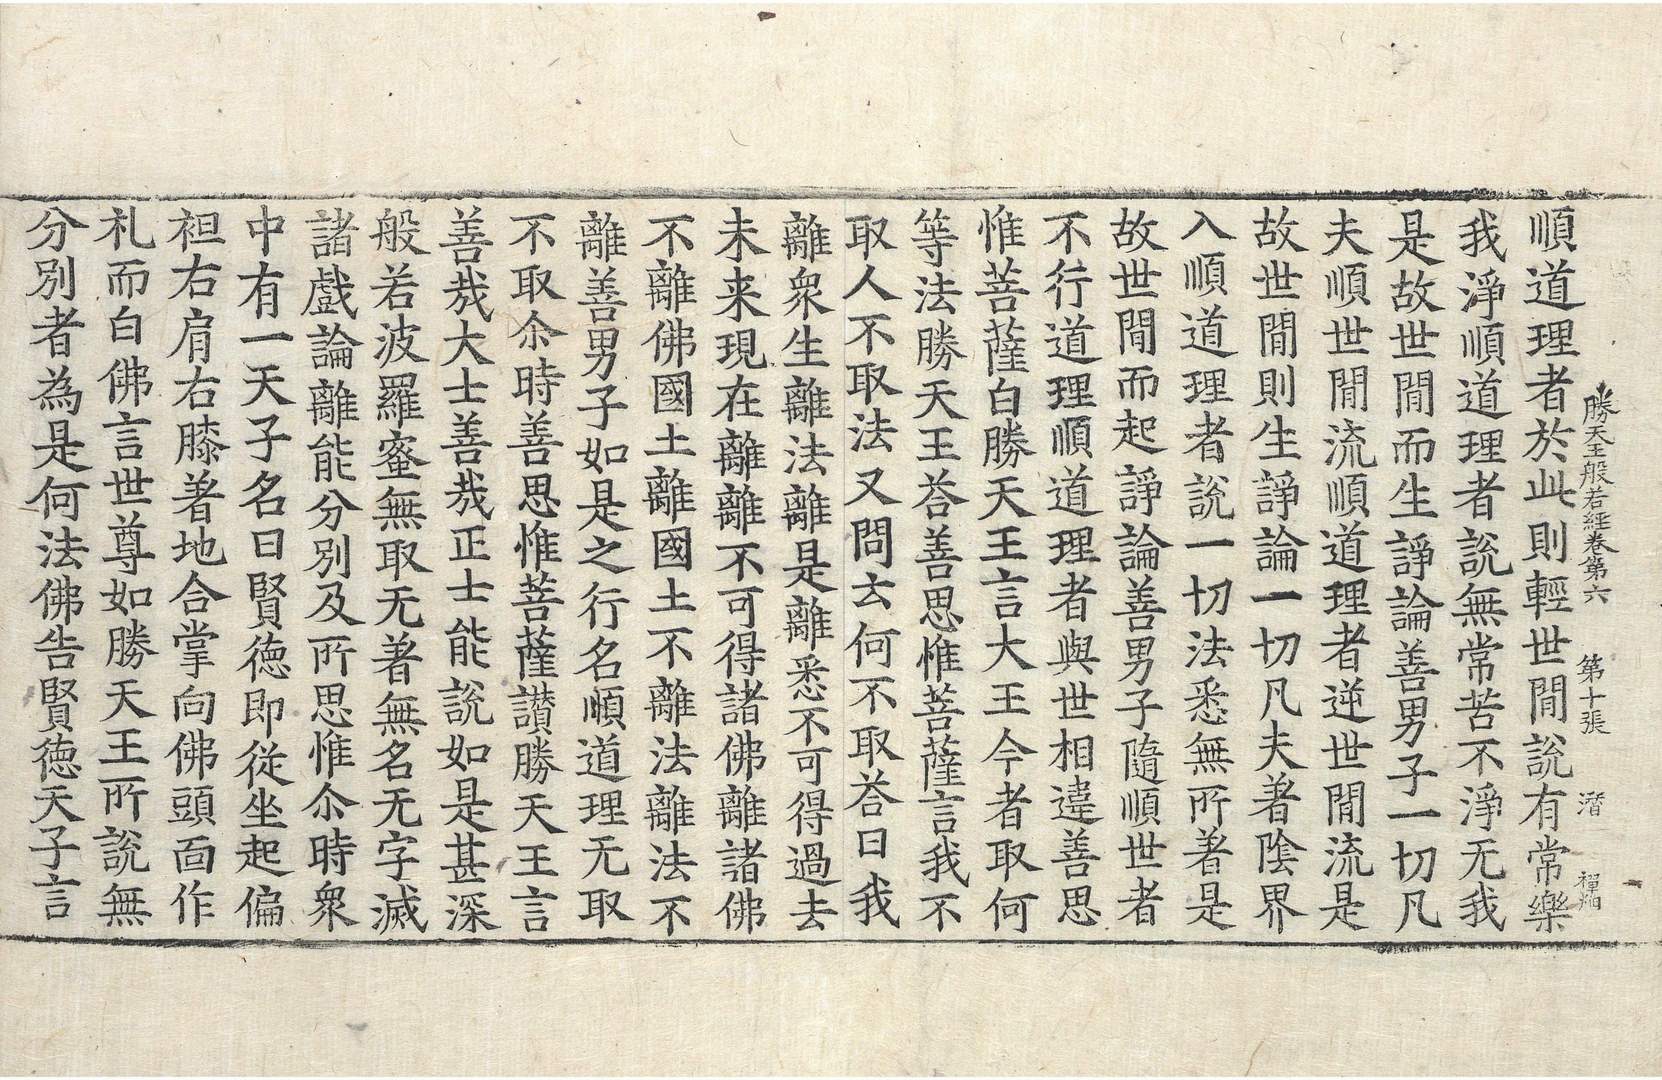 勝天王般若經卷第六　第十張　潛　禪
順道理者於此則輕世閒說有常樂
我淨順道理者說無常苦不淨无我
是故世閒而生諍論善男子一切凡
夫順世閒流順道理者逆世閒流是
故世閒則生諍論一切凡夫著陰界
入順道理者說一切法悉無所著是
故世閒而起諍論善男子隨順世者
不行道理順道理者與世相違善思
惟菩薩白勝天王言大王今者取何
等法勝天王荅善思惟菩薩言我不
取人不取法又問云何不取荅曰我
離衆生離法離是離悉不可得過去
未来現在離離不可得諸佛離諸佛
不離佛國土離國土不離法離法不
離善男子如是之行名順道理无取
不取尒時善思惟菩薩讃勝天王言
善哉大士善哉正士能說如是甚深
般若波羅蜜無取无著無名无字滅
諸戲論離能分別及所思惟尒時衆
中有一天子名曰賢徳即從坐起偏
袒右肩右膝著地合掌向佛頭面作
礼而白佛言世尊如勝天王所說無
分別者為是何法佛告賢徳天子言